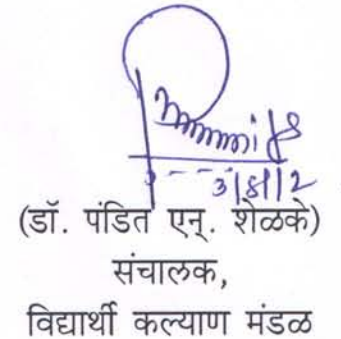 3/8/12
(डॉ. पंडित एन्. शेळके)
संचालक,
विद्यार्थी कल्याण मंडळ